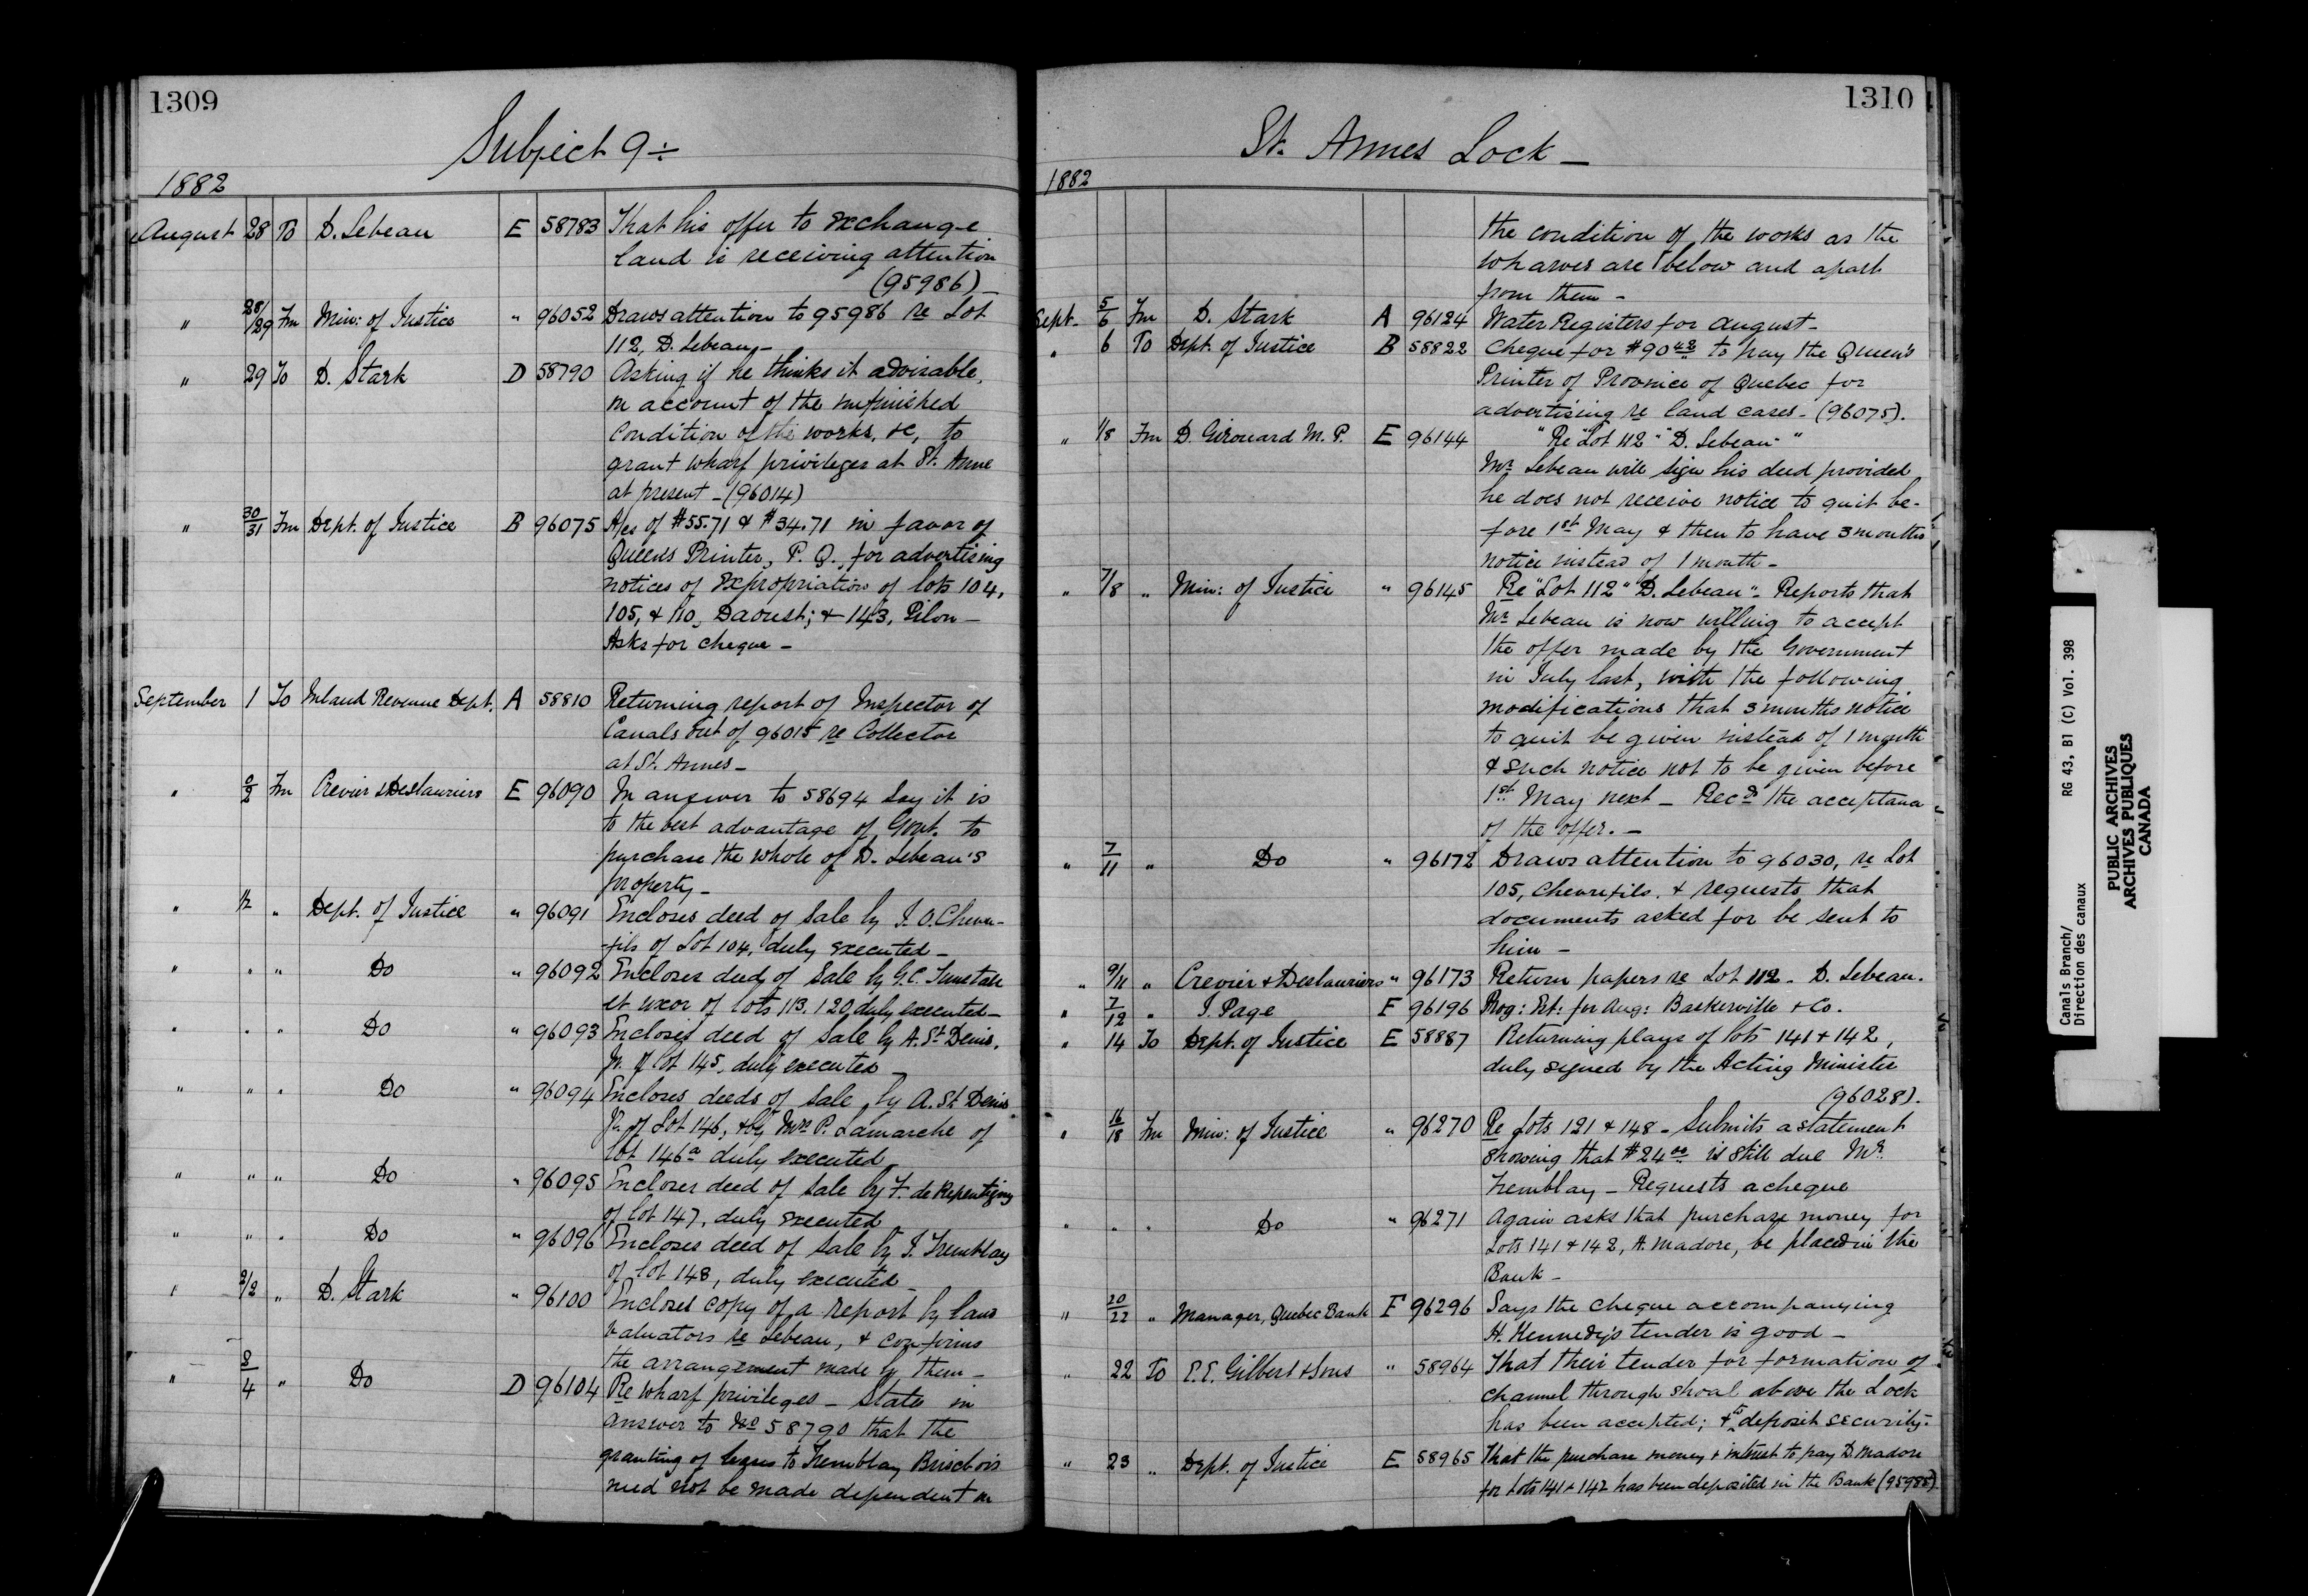 1309
Subject 9 ÷
1882
August 28 To D. Lebeau E 58783 That his offer to exchange
land is receiving attention
(95986) –
" 28/29 Fm Min: of Justice " 96052 Draws attention to 95986 re Lot
112, D. Lebeau –
" 29 To D. Stark D 58790 Asking if he thinks it advisable,
on account of the unfinished
condition of the works, &c, to
grant wharf privileges at St. Anne
at present – (96014)
" 30/31 Fm Dept. of Justice B 96075 A/cs of $55.71 & $34.71 in favor of
Queen's Printer, P. Q., for advertising
notices of expropriation of lots 104,
105, & 110, Daoust; & 143, Pilon –
Asks for cheque –
September 1 To Inland Revenue Dept. A 58810 Returning report of Inspector of
Canals out of 96015 re Collector
at St. Annes –
" /2 Fm Crevier & Deslauriers E 96090 In answer to 58694 say it is
to the best advantage of Govt. to
purchase the whole of D. Lebeau's
property –
" 1/2 " Dept. of Justice " 96091 Encloses deed of sale by J. O. Chevre-
-fils of Lot 104, duly executed –
" " " Do " 96092 Encloses deed of Sale by G. C. Tunstall
et uxor of lots 113, 120, duly executed –
" " " Do " 96093 Encloses deed of Sale by A. St. Denis,
Jr. of lot 145, duly executed –
" " " Do " 96094 Encloses deeds of Sale, by A. St. Denis
Jr. of Lot 146, & by Mrs P. Lamarche of
lot 146a duly executed
" " " Do " 96095 Encloses deed of Sale by F. de Repentigny
of lot 147, duly executed
" " " Do " 96096 Encloses deed of Sale by J. Tremblay
of lot 148, duly executed –
" 2/2 " D. Stark " 96100 Encloses copy of a report by land
valuators re Lebeau, & confirms
the arrangement made by them –
" 2/4 " Do D 96104 Re wharf privileges – States in
answer to No 58790 that the
granting of leases to Tremblay Brisebois
need not be made dependent on
1310
St. Annes Lock –
1882
the condition of the works as the
wharves are below and apart
from them –
Sept. 5/6 Fm D. Stark A 96124 Water Registers for August –
" 6 To Dept. of Justice B 58822 Cheque for $90 42 to pay the Queen's
Printer of Province of Quebec for
advertising re land cases – (96075).
" 1/8 Fm D. Girouard M. P. E 96144 "Re Lot 112" D. Lebeau "
Mr Lebeau will sign his deed provided
he does not receive notice to quit be-
fore 1st May & then to have 3 months
notice instead of 1 month –
" 7/8 " Min: of Justice " 96145 Re "Lot 112" "D. Lebeau" – Reports that
Mr Lebeau is now willing to accept
the offer made by the Government
in July last, with the following
modifications that 3 months notice
to quit be given instead of 1 month
& such notice not to be given before
1st May next – Recds the acceptance
of the offer. –
" 7/11 " Do " 96172 Draws attention to 96030, re Lot
105, Chevrefils, & requests that
documents asked for be sent to
him –
" 9/11 " Crevier & Deslauriers " 96173 Return papers re Lot 112 – D. Lebeau.
" 7/12 " J. Page F 96196 Prog: Est: for Aug: Baskerville & Co.
" 14 To Dept. of Justice E 58887 Returning plans of lots 141 & 142,
duly signed by the Acting Minister
(96028).
" 16/18 Fm Min: of Justice " 96270 Re Lots 121 & 148 – Submits a statement
showing that $24 00 is still due Mr.
Tremblay – Requests a cheque
" " " Do " 96271 Again asks that purchase money for
Lots 141 & 142, A. Madore, be placed in the
Bank –
" 20/22 " Manager, Quebec Bank F 96296 Says the cheque accompanying
H. Kennedy's tender is good –
" 22 To E. E. Gilbert & Sons " 58964 That their tender for formation of
channel through shoal above the Lock
has been accepted; & to deposit security.
" 23 " Dept. of Justice E 58965 That the purchase money & interest to pay D. Madore
for Lots 141 & 142 has been deposited in the Bank (95985)
Canals Branch/ RG 43, B1 (C) Vol. 398
Direction des canaux
PUBLIC ARCHIVES
ARCHIVES PUBLIQUES
CANADA